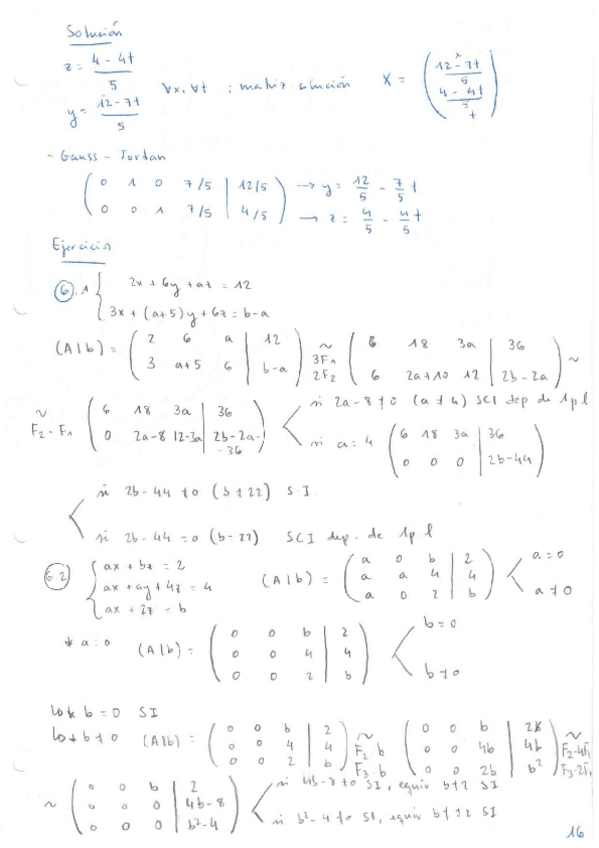 Solución
z = (4 - 4t)/5
y = (12 - 7t)/5    ∀x, ∀t : matriz solución    X = ( x ; (12-7t)/5 ; (4-4t)/5 ; t )
- Gauss - Jordan
( 0 1 0 7/5 | 12/5 ) → y = 12/5 - 7/5 t
( 0 0 1 7/5 | 4/5 ) → z = 4/5 - 4/5 t
Ejercicios
6.1 { 2x + 6y + az = 12
3x + (a+5)y + 6z = b-a
(A|b) = ( 2 6 a | 12 ; 3 a+5 6 | b-a ) ~ 3F1 2F2 ( 6 18 3a | 36 ; 6 2a+10 12 | 2b-2a ) ~
~ F2-F1 ( 6 18 3a | 36 ; 0 2a-8 12-3a | 2b-2a-36 )
si 2a-8≠0 (a≠4) SCI dep de 1pl
si a=4 ( 6 18 3a | 36 ; 0 0 0 | 2b-44 )
si 2b-44≠0 (b≠22) S.I.
si 2b-44=0 (b=22) SCI dep. de 1p l
6.2 { ax + bz = 2
ax + ay + 4z = 4
ax + 2z = b
(A|b) = ( a 0 b | 2 ; a a 4 | 4 ; a 0 2 | b ) < a=0
a≠0
* a=0 (A|b) = ( 0 0 b | 2 ; 0 0 4 | 4 ; 0 0 2 | b ) < b=0
b≠0
b=0 SI
b≠0 (A|b) = ( 0 0 b | 2 ; 0 0 4 | 4 ; 0 0 2 | b ) ~ F2·b F3·b ( 0 0 b | 2 ; 0 0 4b | 4b ; 0 0 2b | b² ) ~ F2-4F1 F3-2F1
~ ( 0 0 b | 2 ; 0 0 0 | 4b-8 ; 0 0 0 | b²-4 )
si 4b-8≠0 SI, equiv b≠2 SI
si b²-4≠0 SI, equiv b≠±2 SI
16